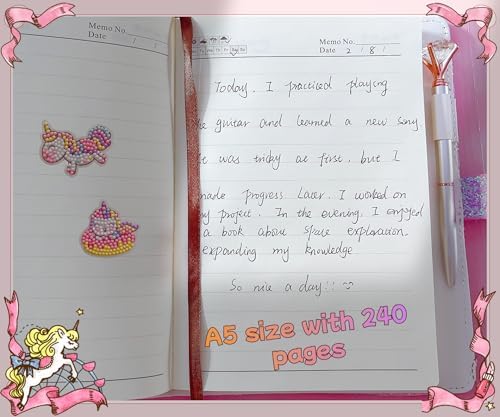 Memo No.
Date / /
Memo No.
Date 2 / 8 /
Today, I practiced playing
he guitar and learned a new song.
It was tricky at first, but I
made progress Later. I worked on
my project. In the evening, I enjoyed
a book about space exploration
expanding my knowledge
So nice a day!!
A5 size with 240
pages